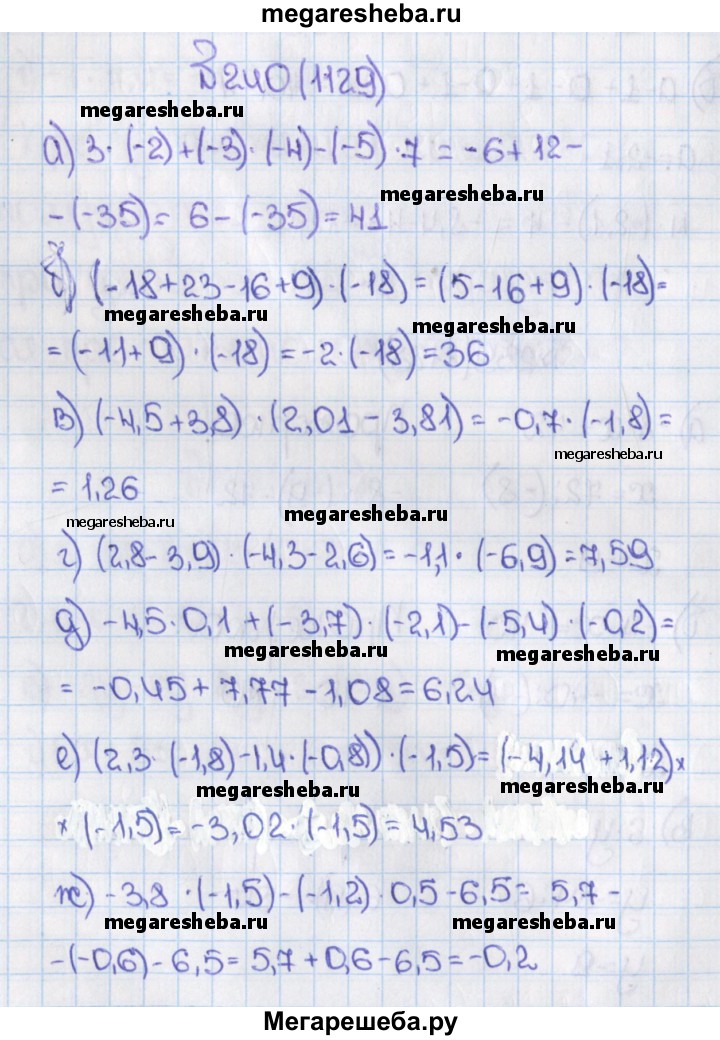 megaresheba.ru
В 240 (1129)
megaresheba.ru
а) 3·(-2)+(-3)·(-4)-(-5)·7 = -6+12-
megaresheba.ru
-(-35)= 6-(-35)=41
б) (-18+23-16+9)·(-18)=(5-16+9)·(-18)=
megaresheba.ru megaresheba.ru
=(-11+9)·(-18)=-2·(-18)=36
в) (-4,5+3,8)·(2,01-3,81)=-0,7·(-1,8)=
megaresheba.ru
=1,26
megaresheba.ru megaresheba.ru
г) (2,8-3,9)·(-4,3-2,6)=-1,1·(-6,9)=7,59
д) -4,5·0,1+(-3,7)·(-2,1)-(-5,4)·(-0,2)=
megaresheba.ru megaresheba.ru
=-0,45+7,77-1,08=6,24
е) (2,3·(-1,8)-1,4·(-0,8))·(-1,5)=(-4,14+1,12)×
megaresheba.ru megaresheba.ru
×(-1,5)=-3,02·(-1,5)=4,53
ж) -3,8·(-1,5)-(-1,2)·0,5-6,5= 5,7-
megaresheba.ru megaresheba.ru
-(-0,6)-6,5=5,7+0,6-6,5=-0,2
Мегарешеба.ру